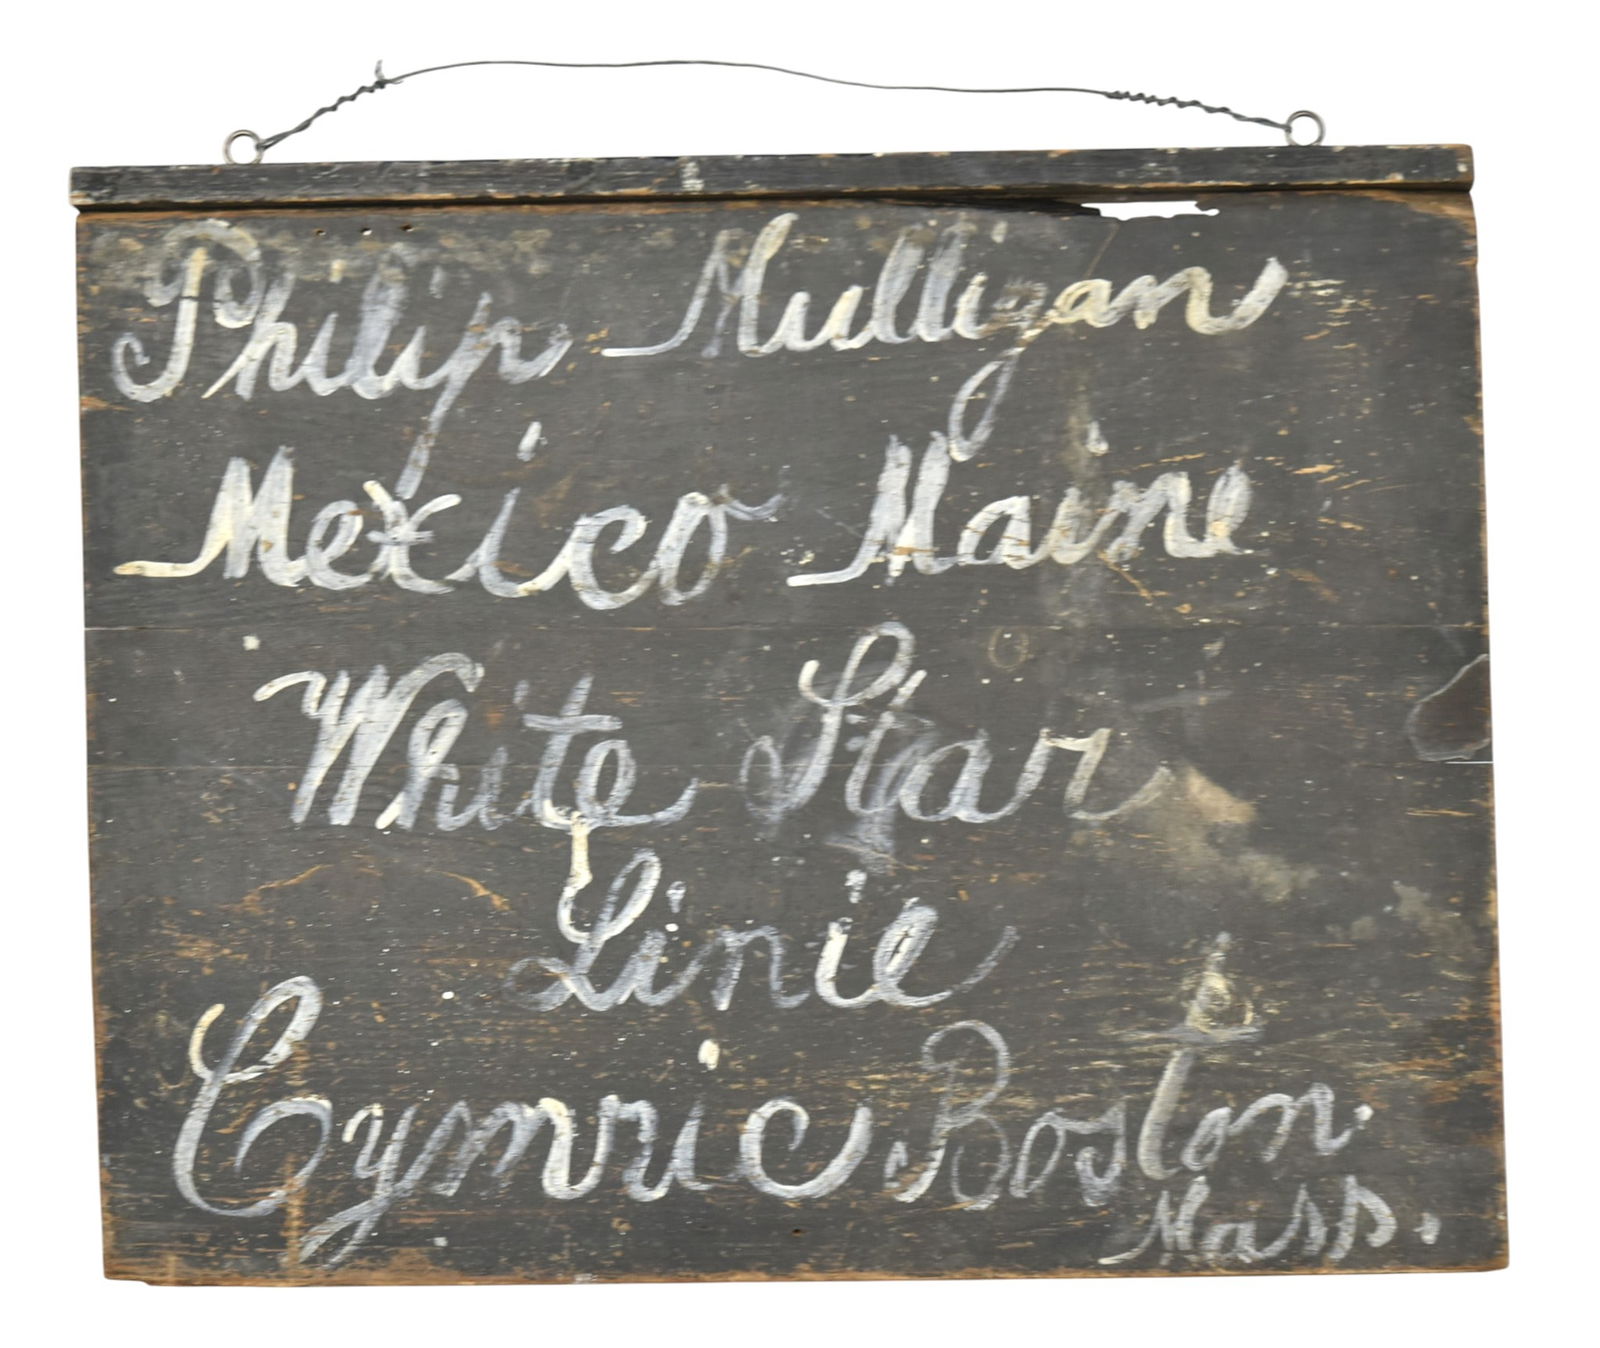 Philip Mulligan
Mexico Maine
White Star
Linie
Cymric Boston.
Mass.